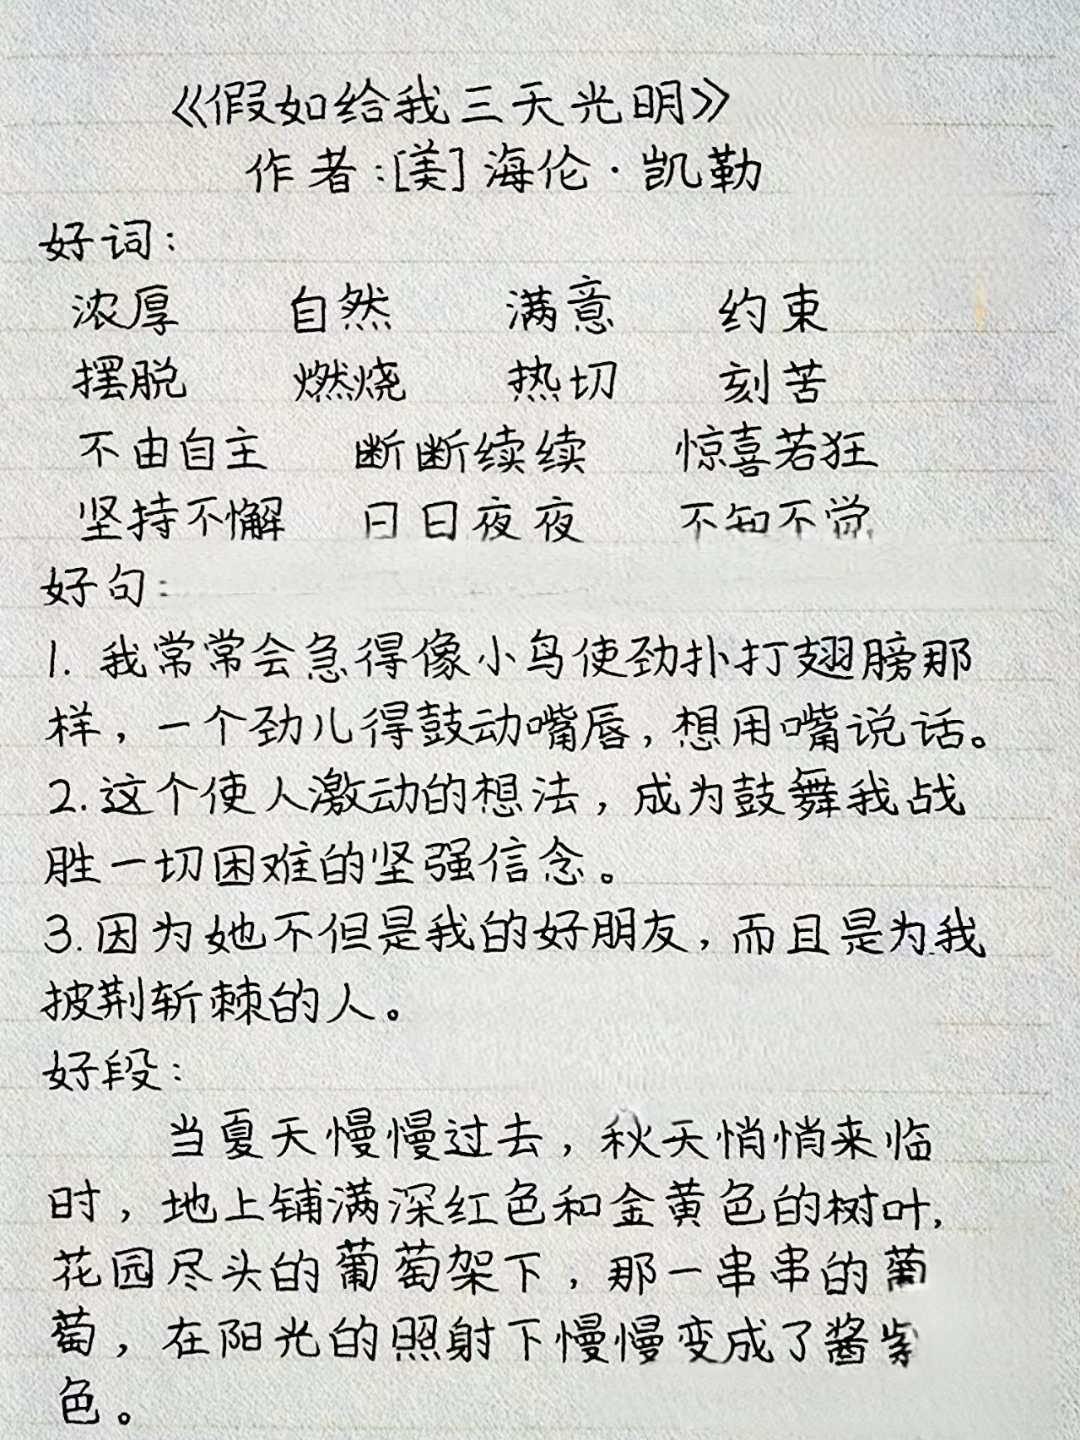 《假如给我三天光明》
作者:[美]海伦·凯勒
好词:
浓厚 自然 满意 约束
摆脱 燃烧 热切 刻苦
不由自主 断断续续 惊喜若狂
坚持不懈 日日夜夜 不知不觉
好句:
1. 我常常会急得像小鸟使劲扑打翅膀那
样，一个劲儿得鼓动嘴唇，想用嘴说话。
2.这个使人激动的想法，成为鼓舞我战
胜一切困难的坚强信念。
3.因为她不但是我的好朋友，而且是为我
披荆斩棘的人。
好段:
当夏天慢慢过去，秋天悄悄来临
时，地上铺满深红色和金黄色的树叶，
花园尽头的葡萄架下，那一串串的葡
萄，在阳光的照射下慢慢变成了酱紫
色。